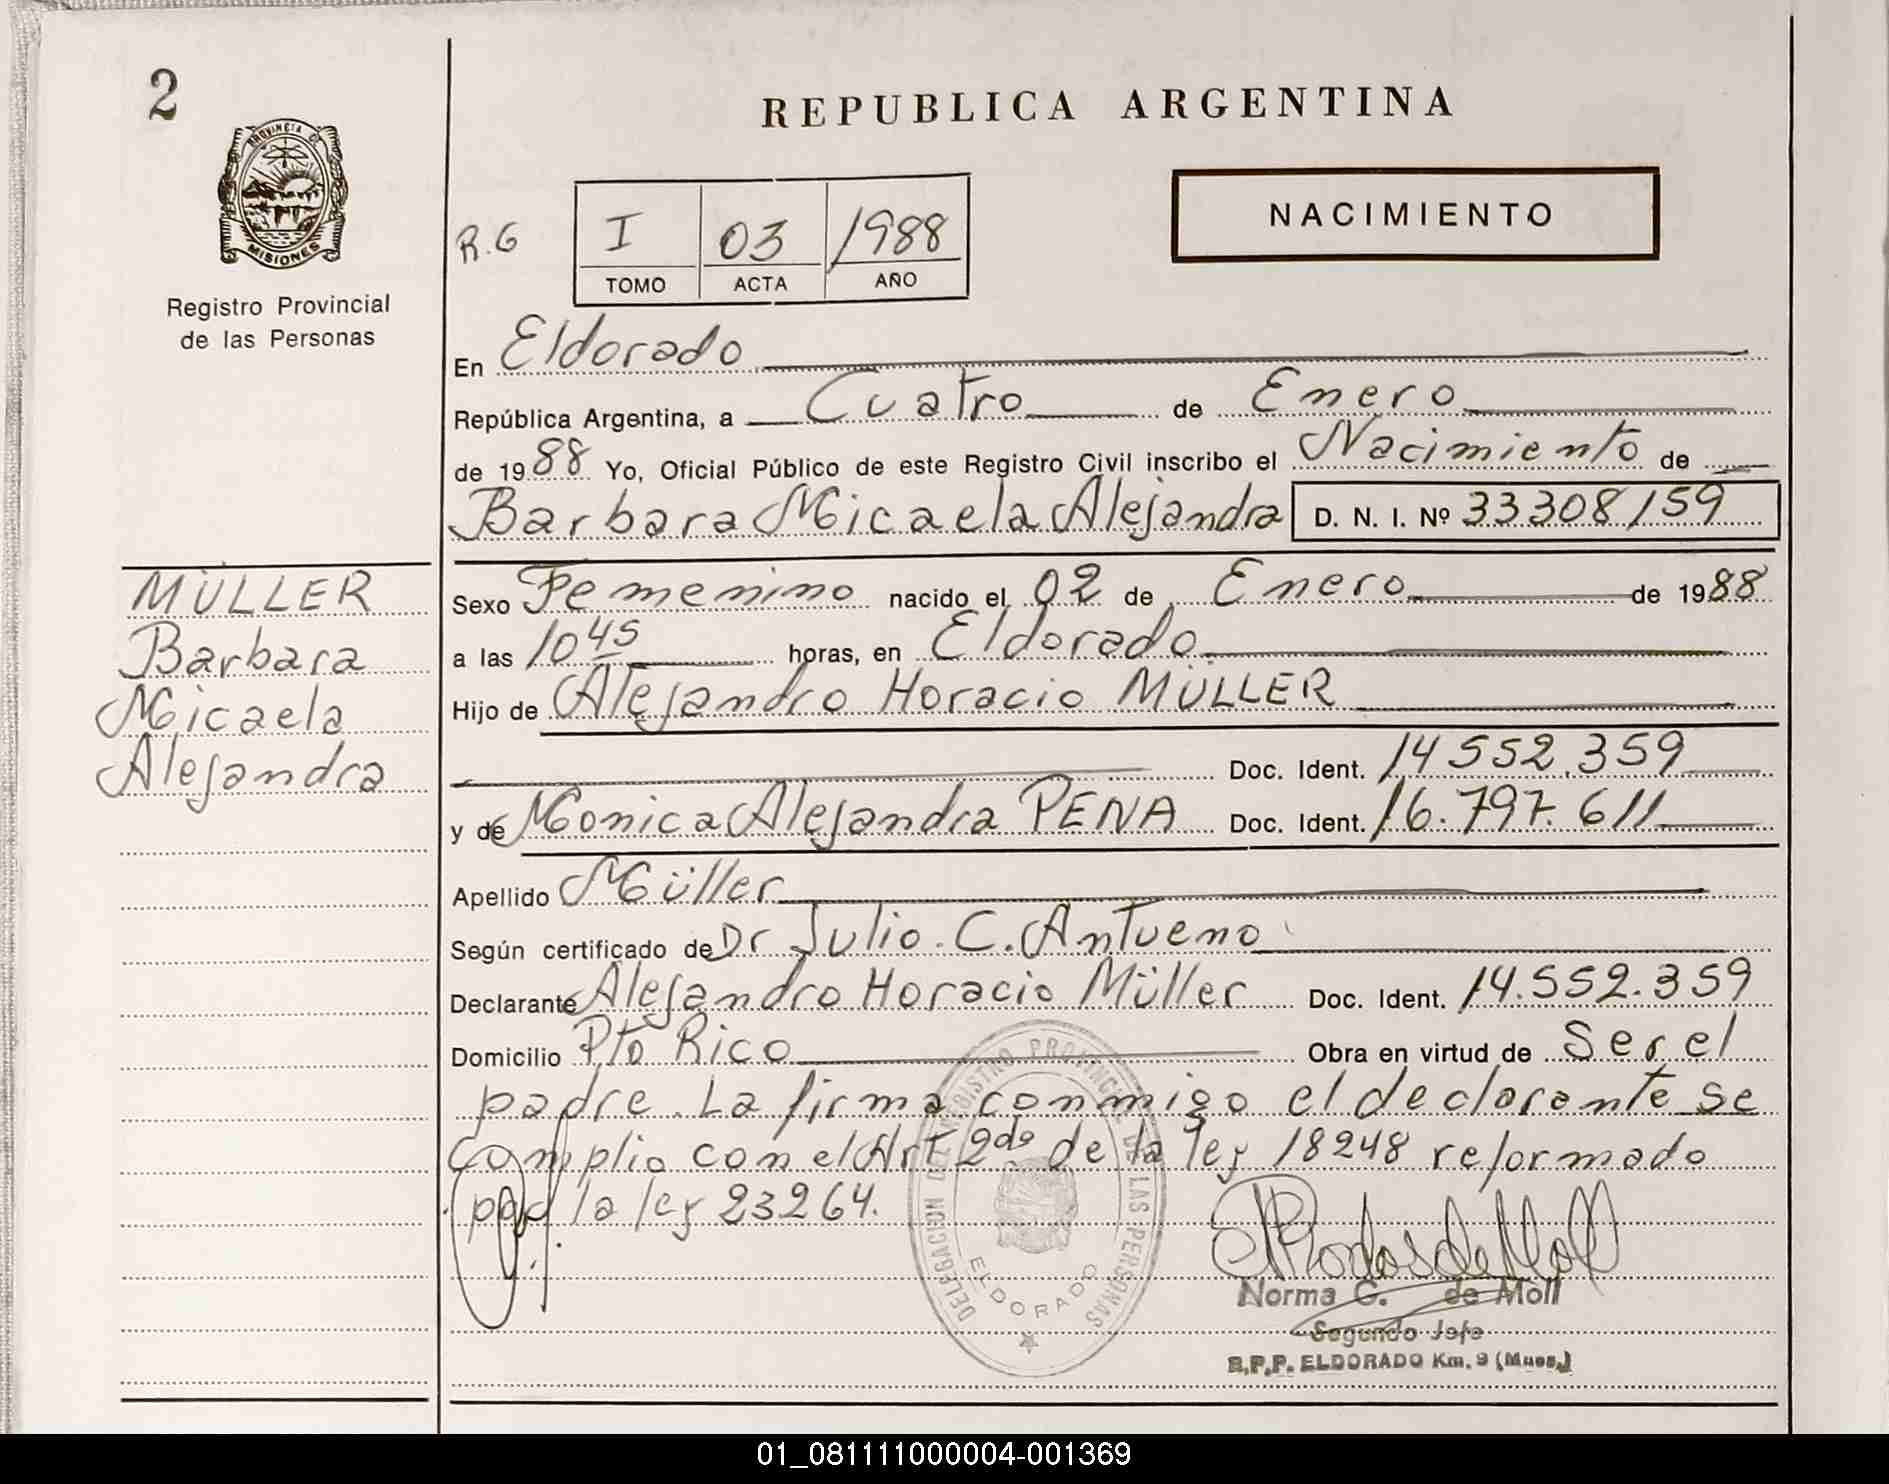 2
REPUBLICA ARGENTINA
PROVINCIA D
MISIONES
Registro Provincial
de las Personas
NACIMIENTO
R.G
I 03 1988
TOMO ACTA AÑO
En Eldorado
República Argentina, a Cuatro de Enero
de 1988 Yo, Oficial Público de este Registro Civil inscribo el Nacimiento de
Barbara Micaela Alejandra D. N. I. Nº 33308159
MÜLLER
Barbara
Micaela
Alejandra
Sexo Femenino nacido el 02 de Enero de 1988
a las 10 45 horas, en Eldorado
Hijo de Alejandro Horacio MÜLLER
Doc. Ident. 14 552.359
y de Monica Alejandra PENA Doc. Ident. 16.797.611
Apellido Müller
Según certificado de Dr Julio. C. Antueno
Declarante Alejandro Horacio Müller Doc. Ident. 14.552.359
Domicilio Pto Rico Obra en virtud de Ser el
padre. La firma conmigo el declarante se
Complio con el Art 2do de la ley 18248 reformado
por la ley 23264.
DELEGACION DEL REGISTRO PROVINCIAL DE LAS PERSONAS
ELDORADO
Norma C. de Moll
Segundo Jefe
R.P.P. ELDORADO Km. 9 (Mnes.)
01_081111000004-001369